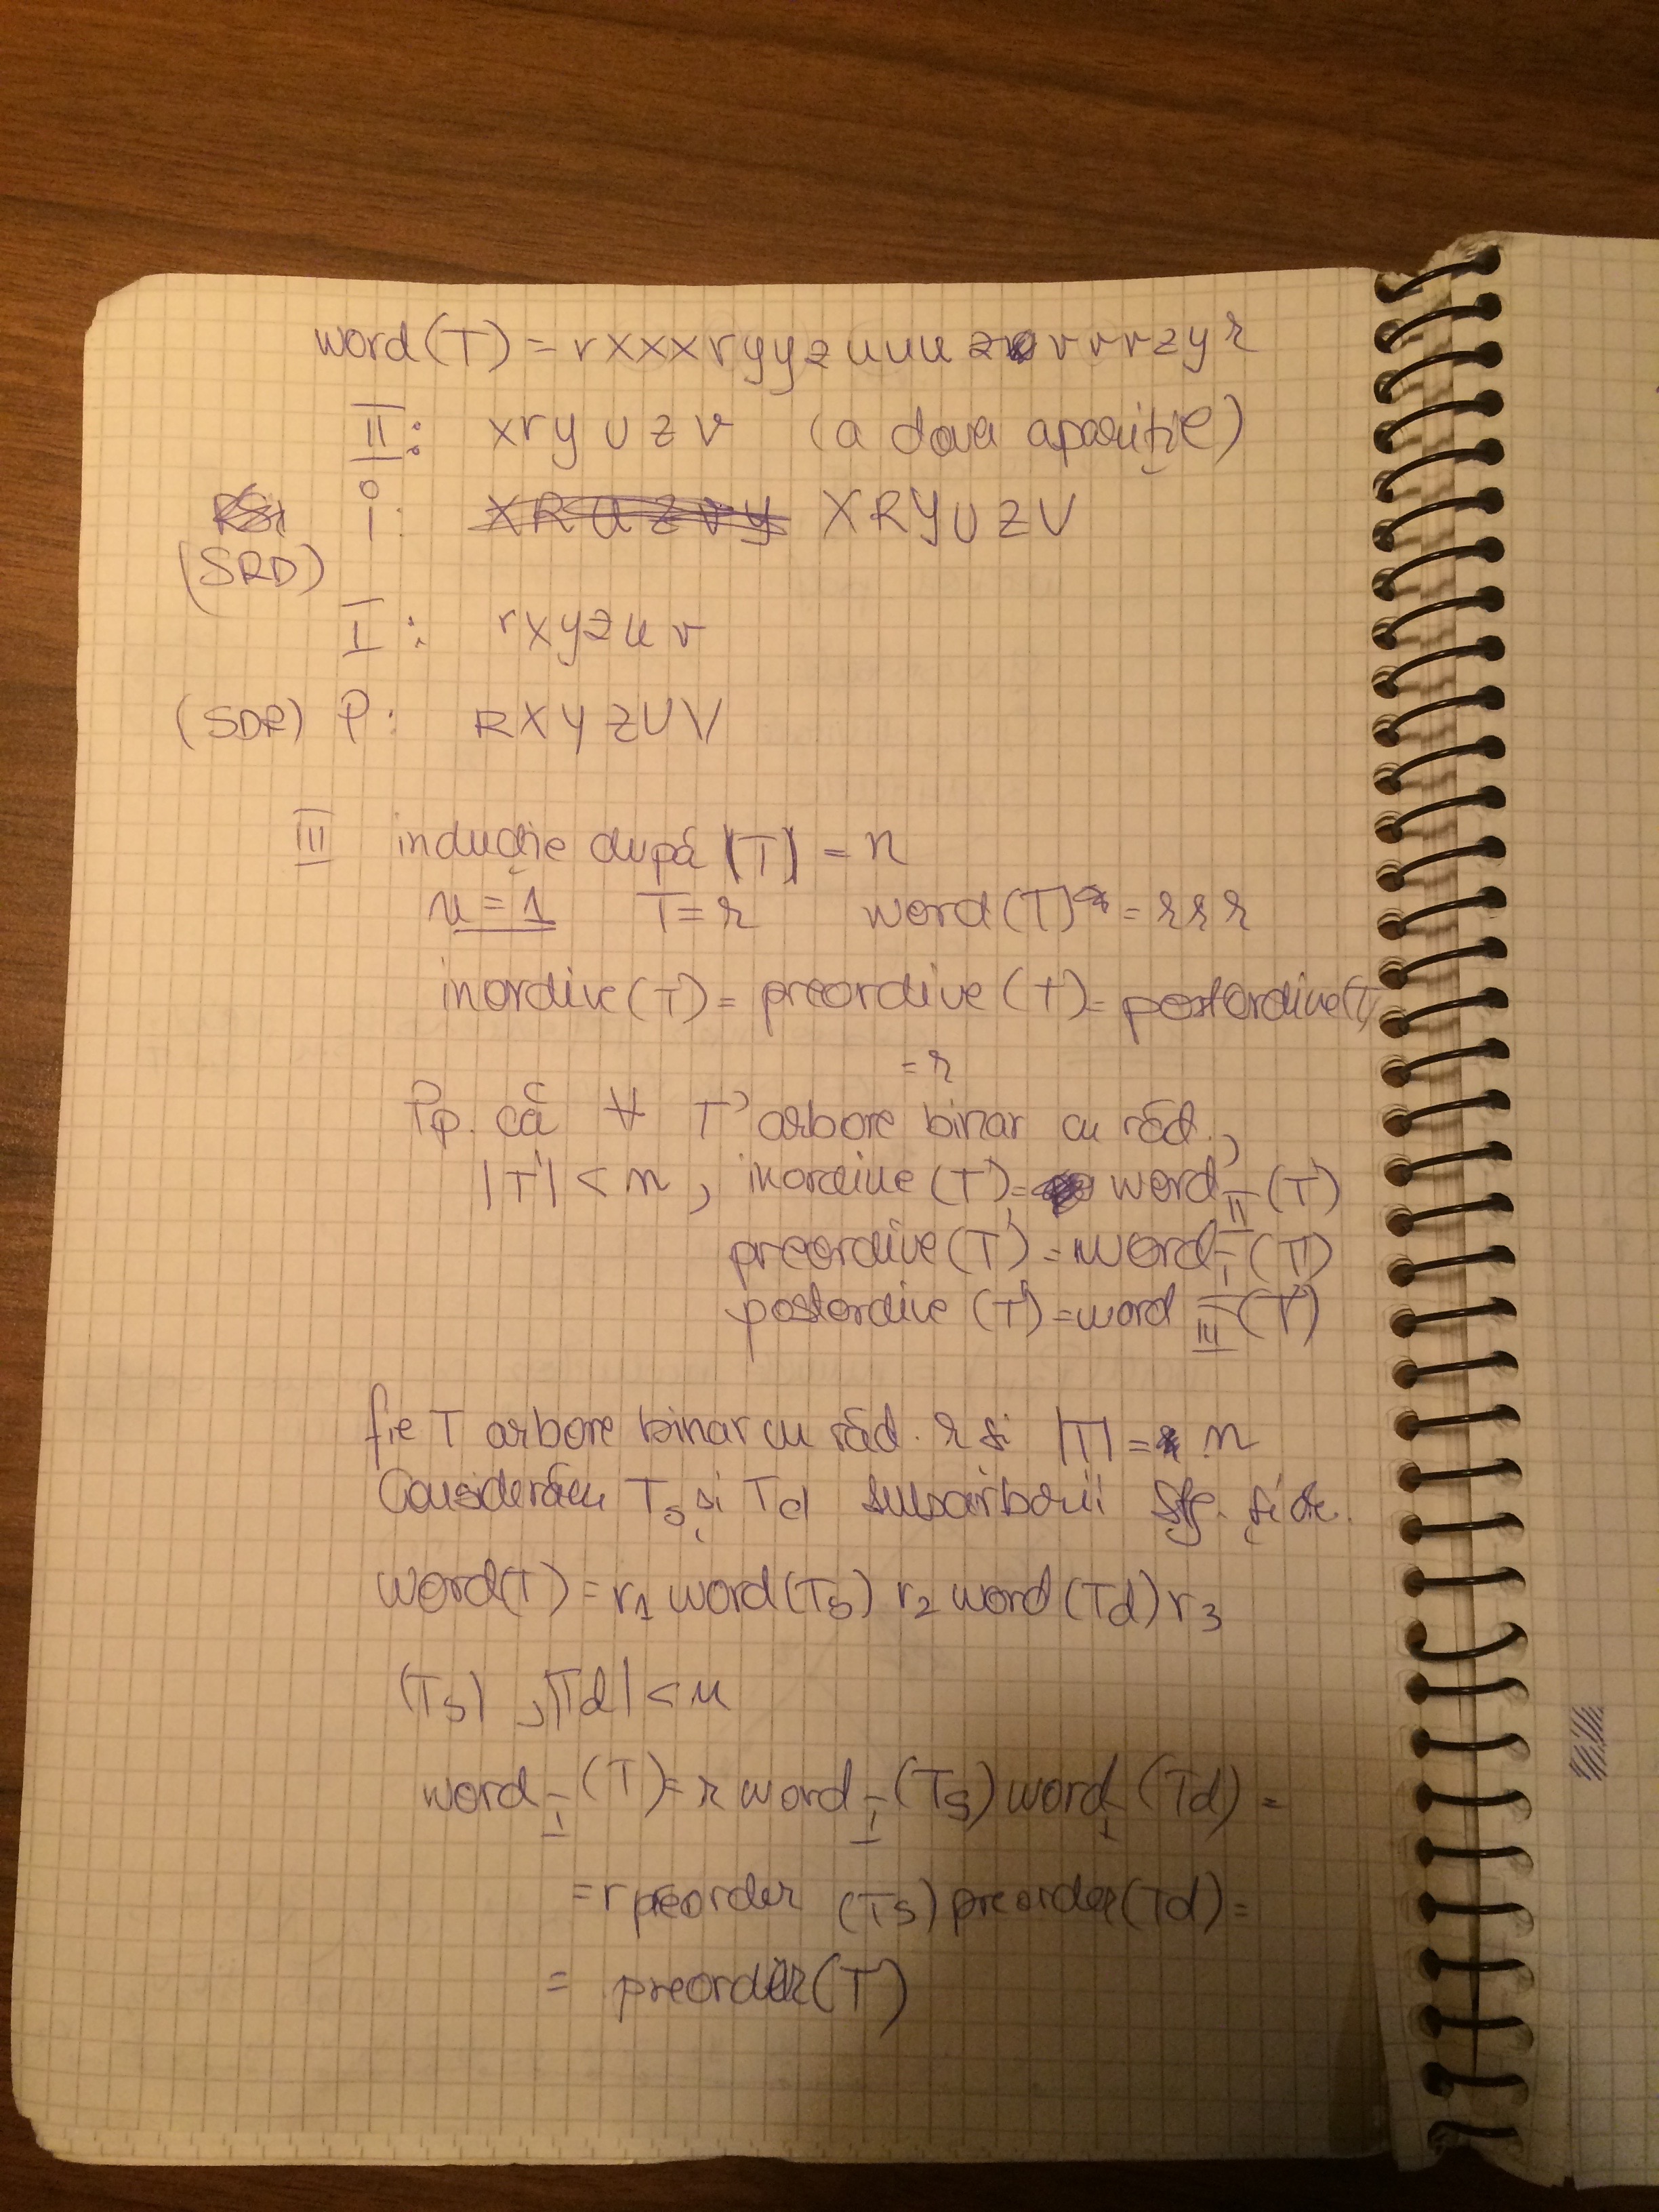 word(T) = r x x x r y y z u u u z v v v z y r
II: x r y u z v (a doua apariție)
i: X R Y U Z V
(SRD)
I: r x y z u v
(SDR) P: R X Y Z U V
III inducție după |T| = n
n = 1 T = r word(T) = r r r
inordine(T) = preordine(T) = postordine(T)
= r
Pp. că ∀ T' arbore binar cu răd.,
|T'| < n, inordine(T') = word II (T')
preordine(T') = word I (T')
postordine(T') = word III (T')
fie T arbore binar cu răd. r și |T| = n
Considerăm Ts și Td subarborii stg. și dr.
word(T) = r1 word(Ts) r2 word(Td) r3
(Ts), |Td| < n
word I (T) = r word I (Ts) word I (Td) =
= r preorder (Ts) preorder(Td) =
= preorder(T)